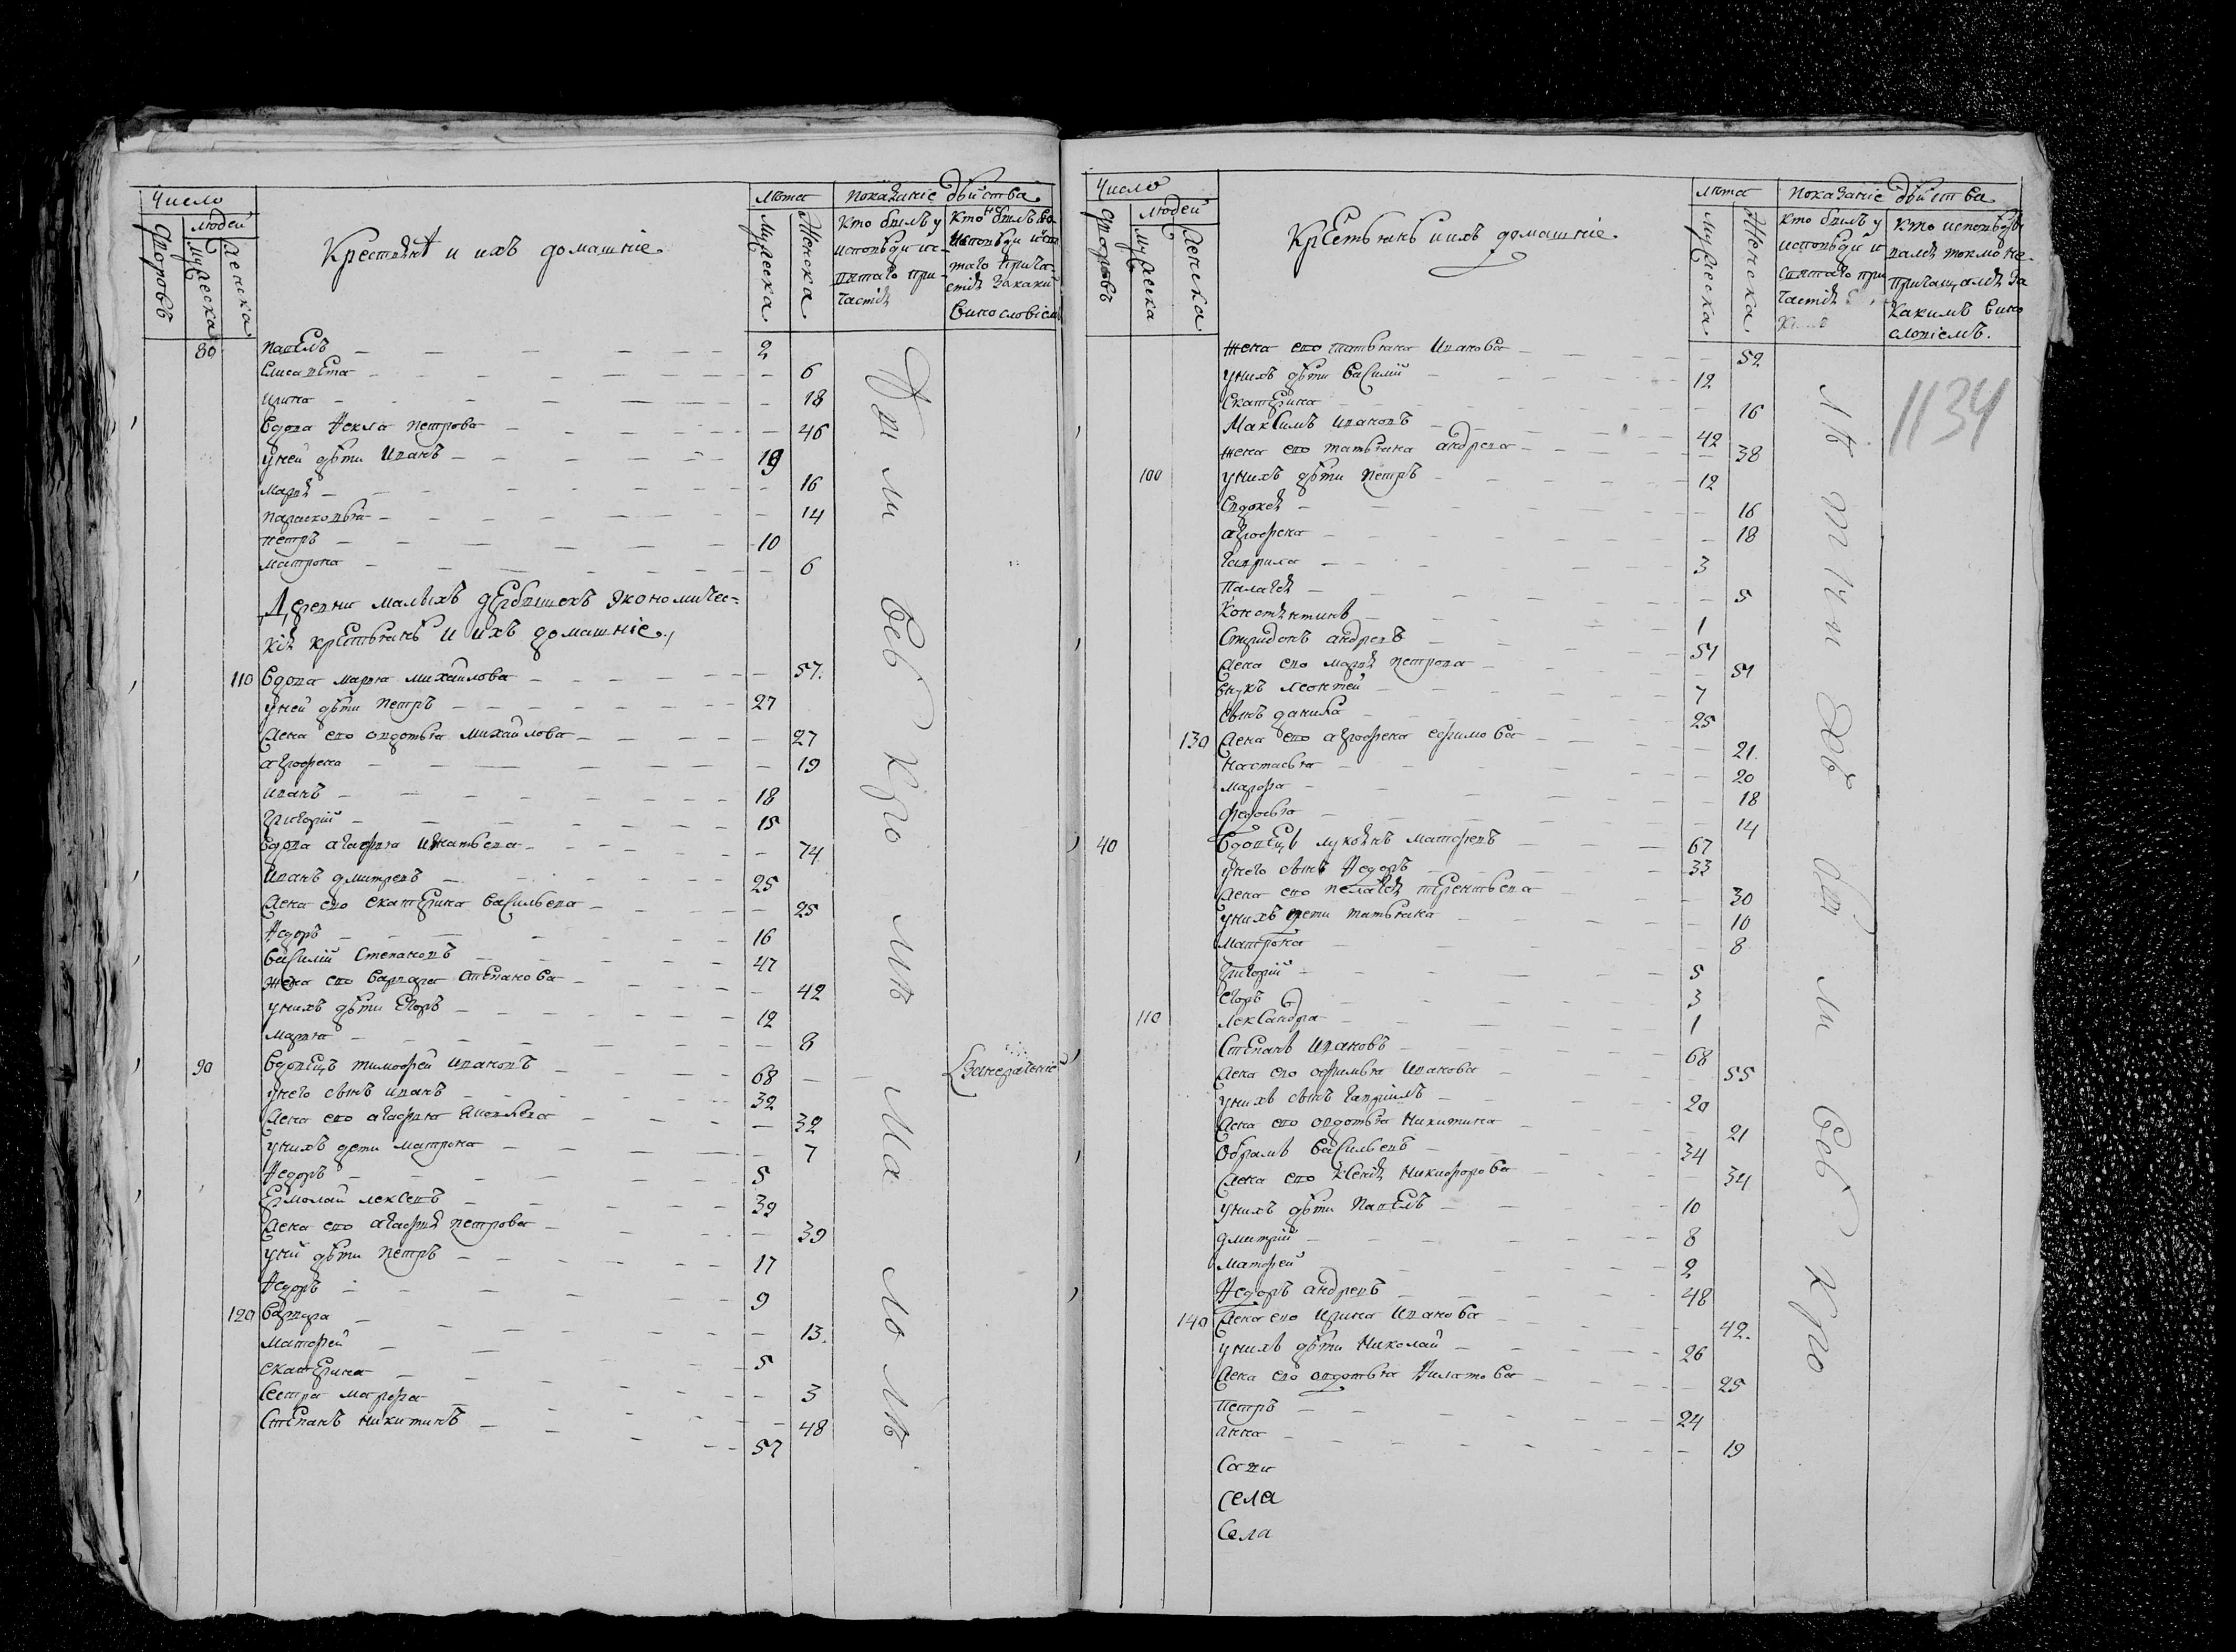 Число
людей
дворовъ
мужеска
женска
Крестьянѣ и ихъ домашніе
Лѣта
Мужеска
Женска
Показаніе дѣйства
Кто былъ у
исповѣди и с-
вятаго при-
частія
Кто не былъ во
исповѣди и свя
таго прича
стія за каки
винословіем
80 Павелъ 2
Елисавета 6
Ирина 18
Вдова Фекла Петрова 46
у ней дѣти Иванъ 19
Марія 16
Парасковья 14
Петръ 10
Матрона 6
Деревни малыхъ дербышекъ экономичес=
кія крѣстьянѣ и ихъ домашніе
110 Вдова марья михайлова 57.
у ней дѣти Петръ 27
Жена ево овдотья Михайлова 27
агрофена 19
Иванъ 18
Григорій 15
Вдова агафья игнатьева 74
Иванъ дмитревъ 25
Жена ево екатерина васильева 25
Федоръ 16
Василій Степановъ 47
жена ево варвара степанова 42
у нихъ дѣти Егоръ 12
Марья 8
90 Вдовецъ тимофей ивановъ 68
у него сынъ иванъ 32
Жена ево агафья 32
у нихъ дети матрона 7
Федоръ 5
Ермолай лексевъ 39
Жена ево агафія петрова 39
у ний дѣти Петръ 17
Федоръ 9
120 Варвара 13.
Матфей 5
Екатерина 3
Сестра марфа 48
Степанъ никитинъ 57
Число
дворовъ
людей
мужеска
женска
Крестьянѣ и ихъ домашніе.
лѣта
Мужеска
Женска
Показаніе дѣйства
Кто былъ у
исповѣди и
святаго при
частія
Кто исповѣды
вался токмо не
причащался за
какимъ вино
словіемъ.
1134
жена ево татьяна Иванова 52
у нихъ дѣти Василій 12
Екатерина 16
Максимъ ивановъ 42
жена ево татьяна андрева 38
100 у нихъ дѣти Петръ 12
Евдокея 16
агрофена 18
Гаврила 3
Палагея 5
Констянтинъ 1
Спиридонъ андревъ 51
Жена ево марія петрова 51
внукъ леонтей 7
сынъ данила 25
130 Жена ево агрофена ефимова 21.
Настасья 20
Марфа 18
Федосья 14
40 Вдовецъ лукоянъ матфеевъ 67
у него сынъ Федоръ 33
Жена ево пелагея терентьева 30
у нихъ дети татьяна 10
Матрона 8
Григорій 5
Егоръ 3
110 Лександра 1
Степанъ Ивановъ 68
Жена ево офимья Иванова 55
у нихъ сынъ Гаврилъ 20
Жена ево овдотья никитина 21
Обрамъ васильевъ 34
Жена ево Ксенія Никифорова 34
у нихъ дѣти Павелъ 10
дмитрій 8
Матфей 2
Федоръ андревъ 48
140 Жена ево Ирина Иванова 42.
у нихъ дѣти Николай 26
Жена ево овдотья Филатова 25
Петръ 24
Анна 19
села
села